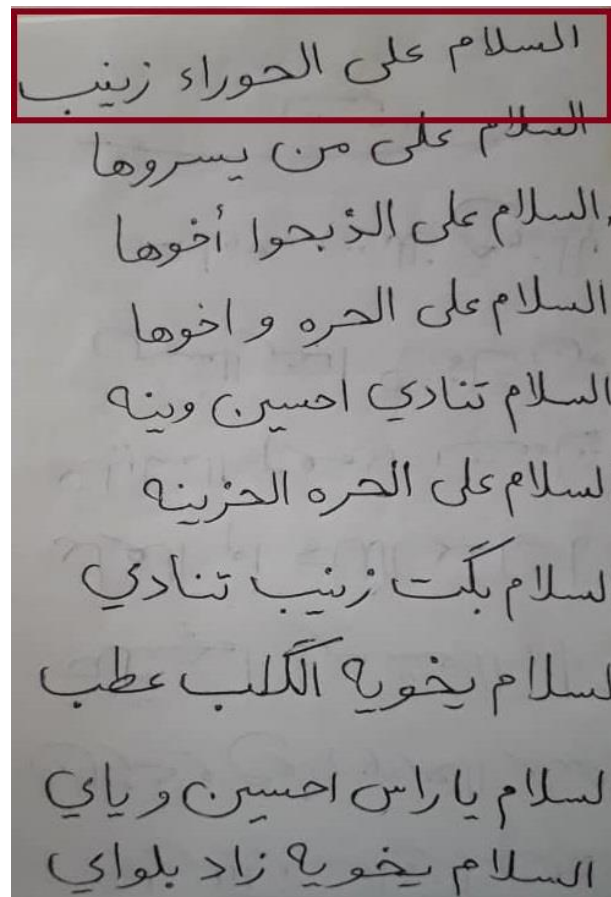 السلام على الحوراء زينب
السلام على من يسروها
السلام على الذبحوا أخوها
السلام على الحره و اخوها
السلام تنادي احسين وينه
لسلام على الحره الحزينه
لسلام بگت زينب تنادي
لسلام يخويه الگلب عطب
لسلام ياراس احسين وياي
السلام يخويه زاد بلواي